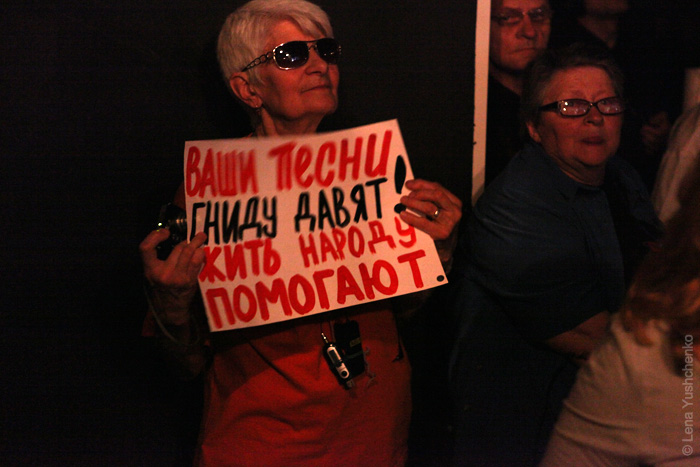 ВАШИ ПЕСНИ
ГНИДУ ДАВЯТ!
ЖИТЬ НАРОДУ
ПОМОГАЮТ.
© Lena Yushchenko